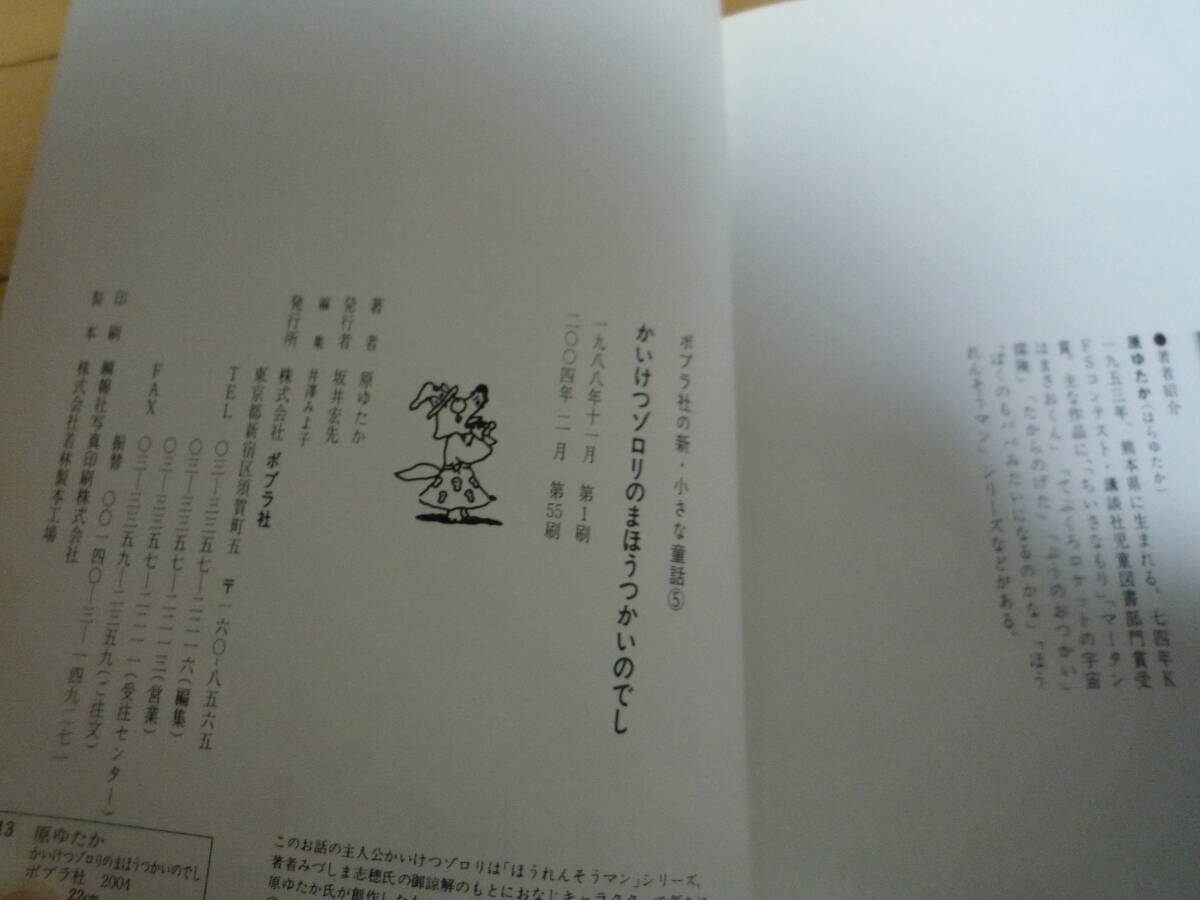 ●著者紹介
原ゆたか(はらゆたか)
一九五三年、熊本県に生まれる。七四年K
FSコンテスト・講談社児童図書部門賞受
賞。主な作品に、「ちいさなもり」「マータン
はまさおくん」「てぶくろロケットの宇宙
探険」「たからのげた」「ぞうのおつかい」
「ぼくのもパパみたいになるのかな」「ほう
れんそうマン」シリーズなどがある。
ポプラ社の新・小さな童話⑤
かいけつゾロリのまほうつかいのでし
一九八八年十一月 第1刷
二〇〇四年 二月 第55刷
著者 原ゆたか
発行者 坂井宏先
編集 井澤みよ子
発行所 株式会社 ポプラ社
東京都新宿区須賀町五 〒一六〇-八五六五
TEL 〇三―三三五七―二二一六(編集)
〇三―三三五七―二二一三(営業)
〇三―三三五七―二二一一(受注センター)
FAX 〇三―三三五九―二三五九(ご注文)
振替 〇〇一四〇―三―一四九二七一
印刷 瞬報社写真印刷株式会社
製本 株式会社若林製本工場
13 原ゆたか
かいけつゾロリのまほうつかいのでし
ポプラ社 2004
22cm
このお話の主人公かいけつゾロリは「ほうれんそうマン」シリーズ、
著者みづしま志穂氏の御諒解のもとにおなじキャラクターで新たに
原ゆたか氏が創作したもの